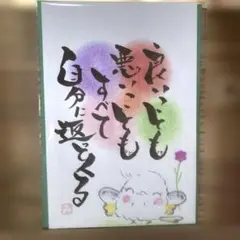 良いことも
悪いことも
すべて
自分に返ってくる